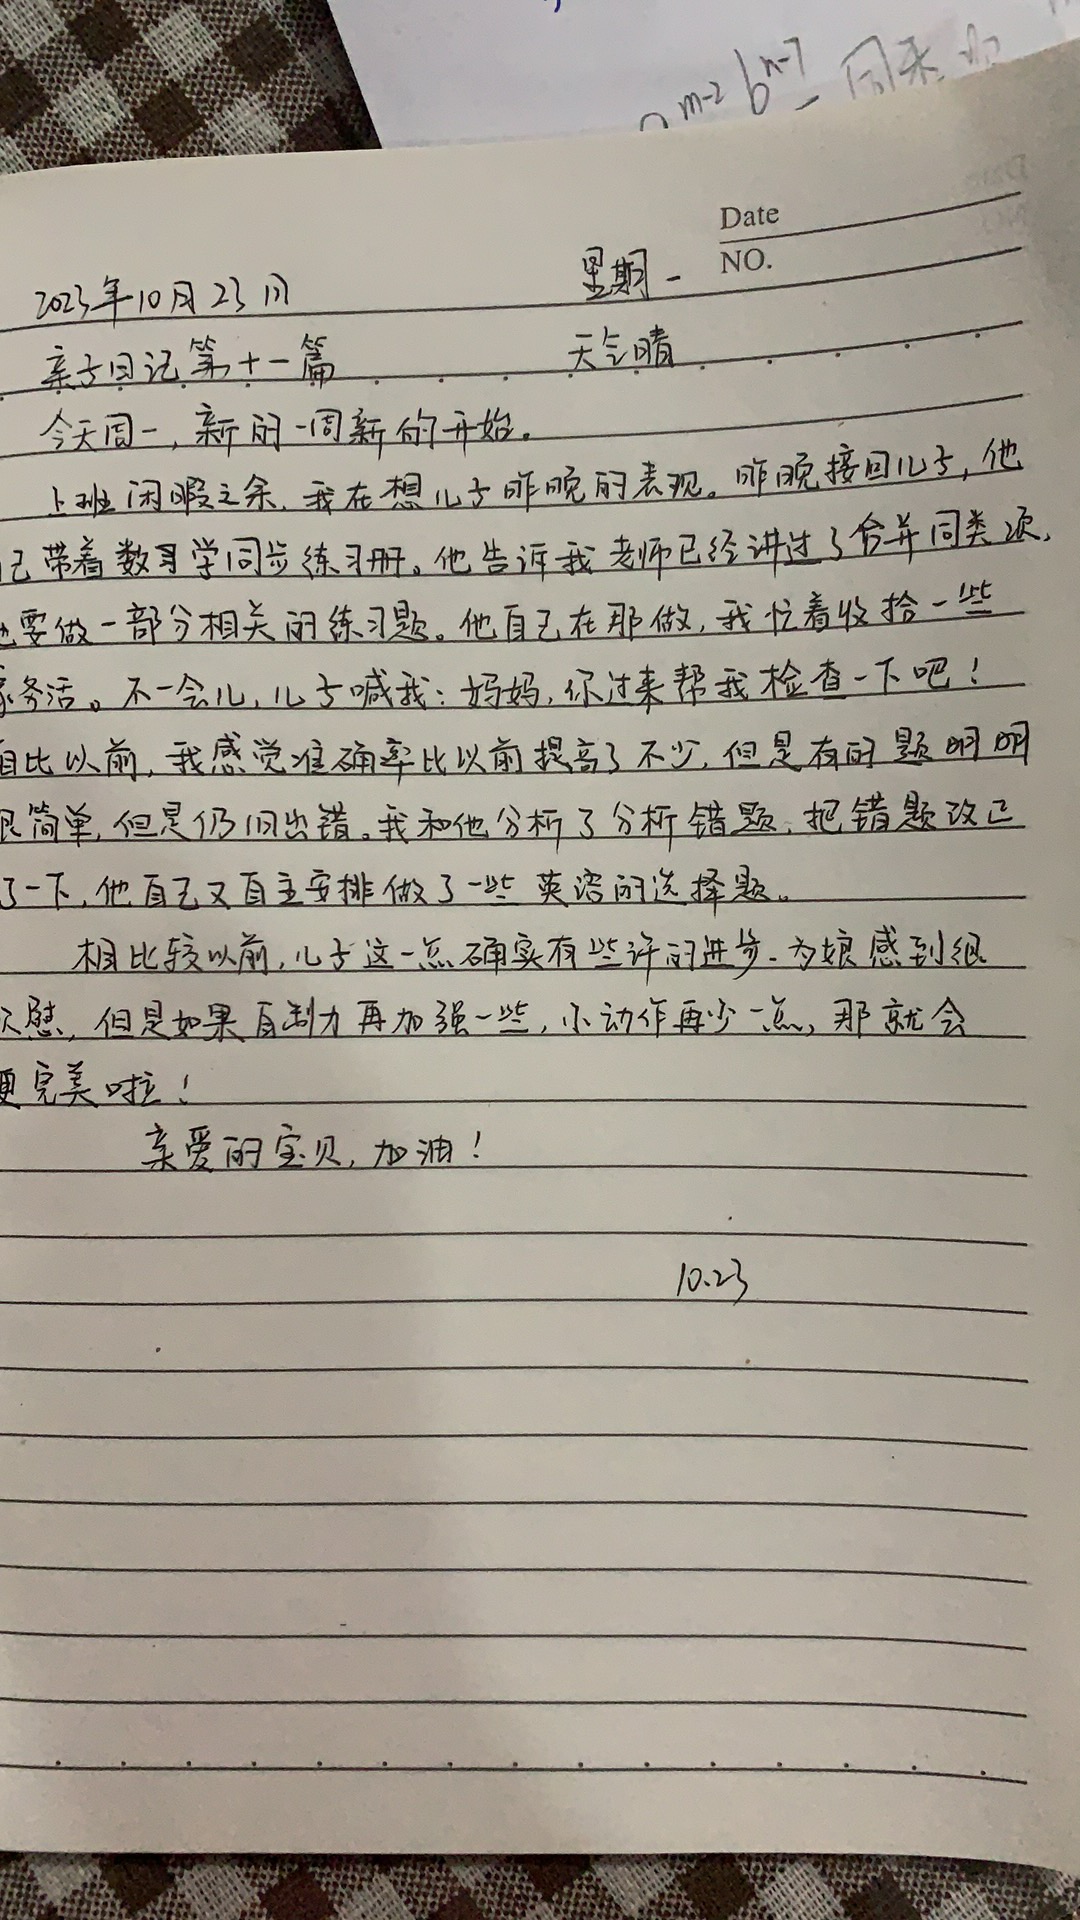 m-2 b n-7 同类项
Date
NO.
2023年10月23日 星期一
亲子日记第十一篇 天气晴
今天周一，新的一周新的开始。
上班闲暇之余，我在想儿子昨晚的表现。昨晚接回儿子，他
己带着数学同步练习册。他告诉我老师已经讲过了合并同类项，
要做一部分相关的练习题。他自己在那做，我忙着收拾一些
家务活。不一会儿，儿子喊我：妈妈，你过来帮我检查一下吧！
相比以前，我感觉准确率比以前提高了不少，但是有的题明明
很简单，但是仍旧出错。我和他分析了分析错题，把错题改正
了一下，他自己又自主安排做了一些英语的选择题。
相比较以前，儿子这一点确实有些许的进步，为娘感到很
欣慰，但是如果自制力再加强一些，小动作再少一点，那就会
更完美啦！
亲爱的宝贝，加油！
10.23